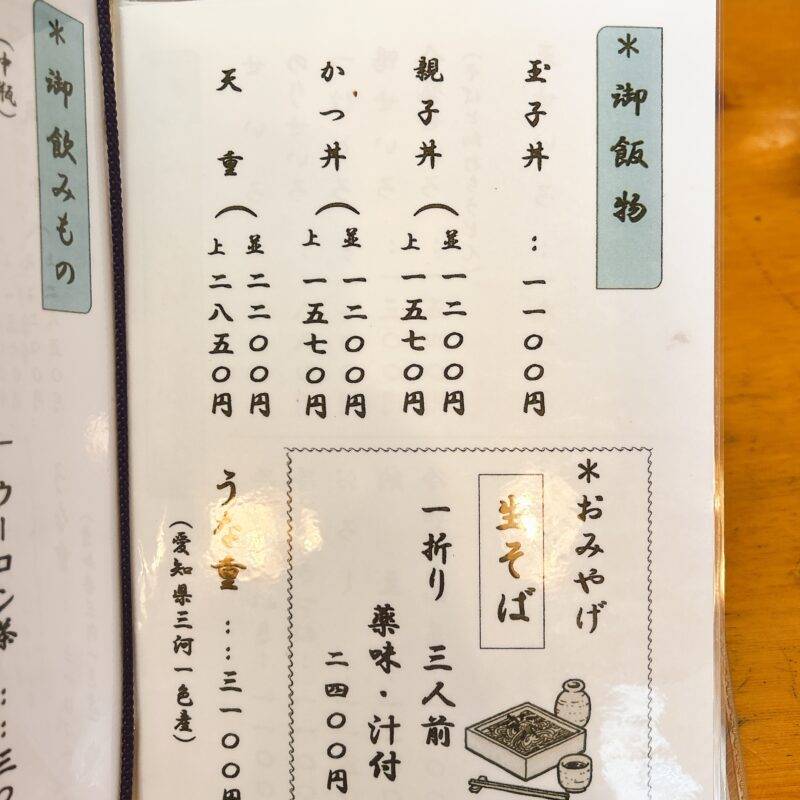 ＊御飯物
玉子丼 : 一一〇〇円
親子丼（並 一二〇〇円
上 一五七〇円
かつ丼（並 一二〇〇円
上 一五七〇円
天重（並 二二〇〇円
上 二八五〇円
＊おみやげ
生そば
一折り 三人前
薬味・汁付
二四〇〇円
うな重 ::: 三一〇〇円
（愛知県三河一色産）
＊御飲みもの
（中瓶）
ウーロン茶